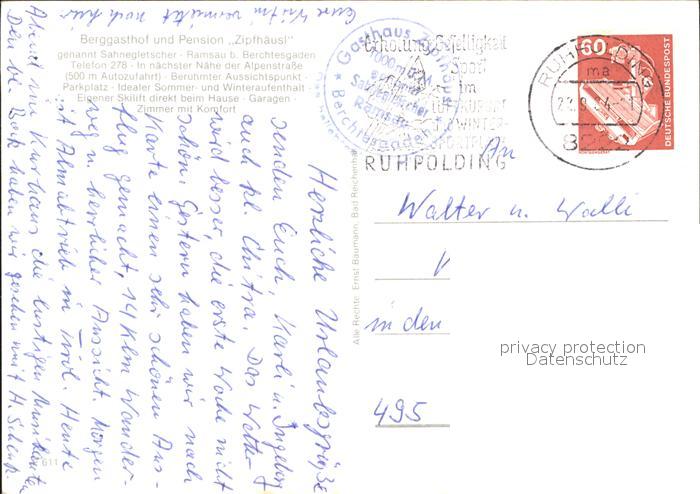 Berggasthof und Pension „Zipfhäusl"
genannt Sahnegletscher - Ramsau b. Berchtesgaden
Telefon 278 - In nächster Nähe der Alpenstraße
(500 m Autozufahrt) - Berühmter Aussichtspunkt -
Parkplatz - Idealer Sommer- und Winteraufenthalt
Eigener Skilift direkt beim Hause - Garagen -
Zimmer mit Komfort
Herzliche Urlaubsgrüße
senden Euch, Karli u. Ingeborg
und kl. Chitra. Das Wetter
wird besser, die erste Woche nicht
schön. Gestern haben wir nach
Karte einen sehr schönen Aus-
flug gemacht, 14 klm Wander-
weg m. herrlicher Aussicht. Morgen
ist Almabtrieb in Tirol. Heute
Abend im Kurhaus die lustigen Musikanten
Den haben wir gesehen mit H.
Eure Chitra vermißt noch
Gasthaus Zipfhäusl
1000 m
Sahnegletscher
Ramsau
Berchtesgaden
Erholung Geselligkeit
Sport
im
WINTER
RUHPOLDING
RUHPOLDING
ma
23.9.84
8222
60
DEUTSCHE BUNDESPOST
Alle Rechte: Ernst Baumann, Bad Reichenhall
An
Walter u. Walli
V
in den
495
privacy protection
Datenschutz
611